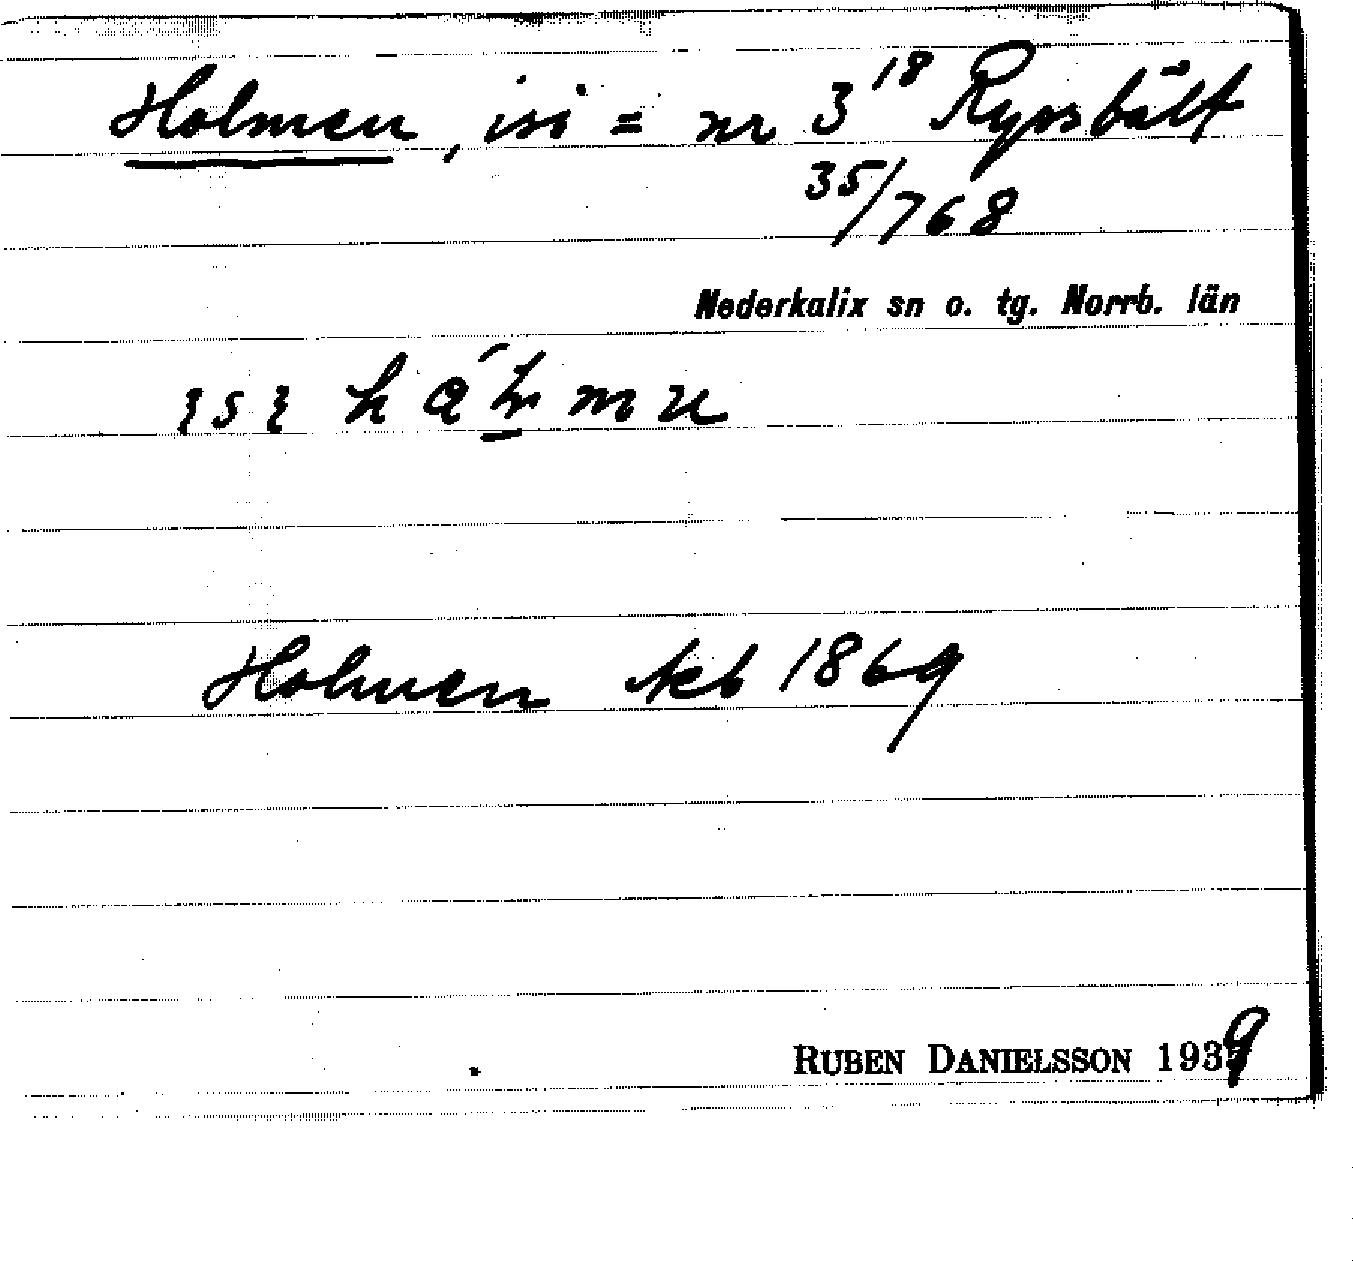 Holmen, isi = nr 3¹⁸ Ryssbält
35/768
Nederkalix sn o. tg. Norrb. län
Holmen Aeb 1869
RUBEN DANIELSSON 1939